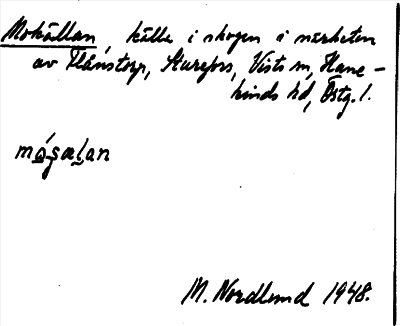 Mokällan, källa i skogen i närheten
av Hånstorp, Sturefors, Vists sn, Hane-
kinds hd, Östg. l.
mósælan
M. Nordlund 1948.